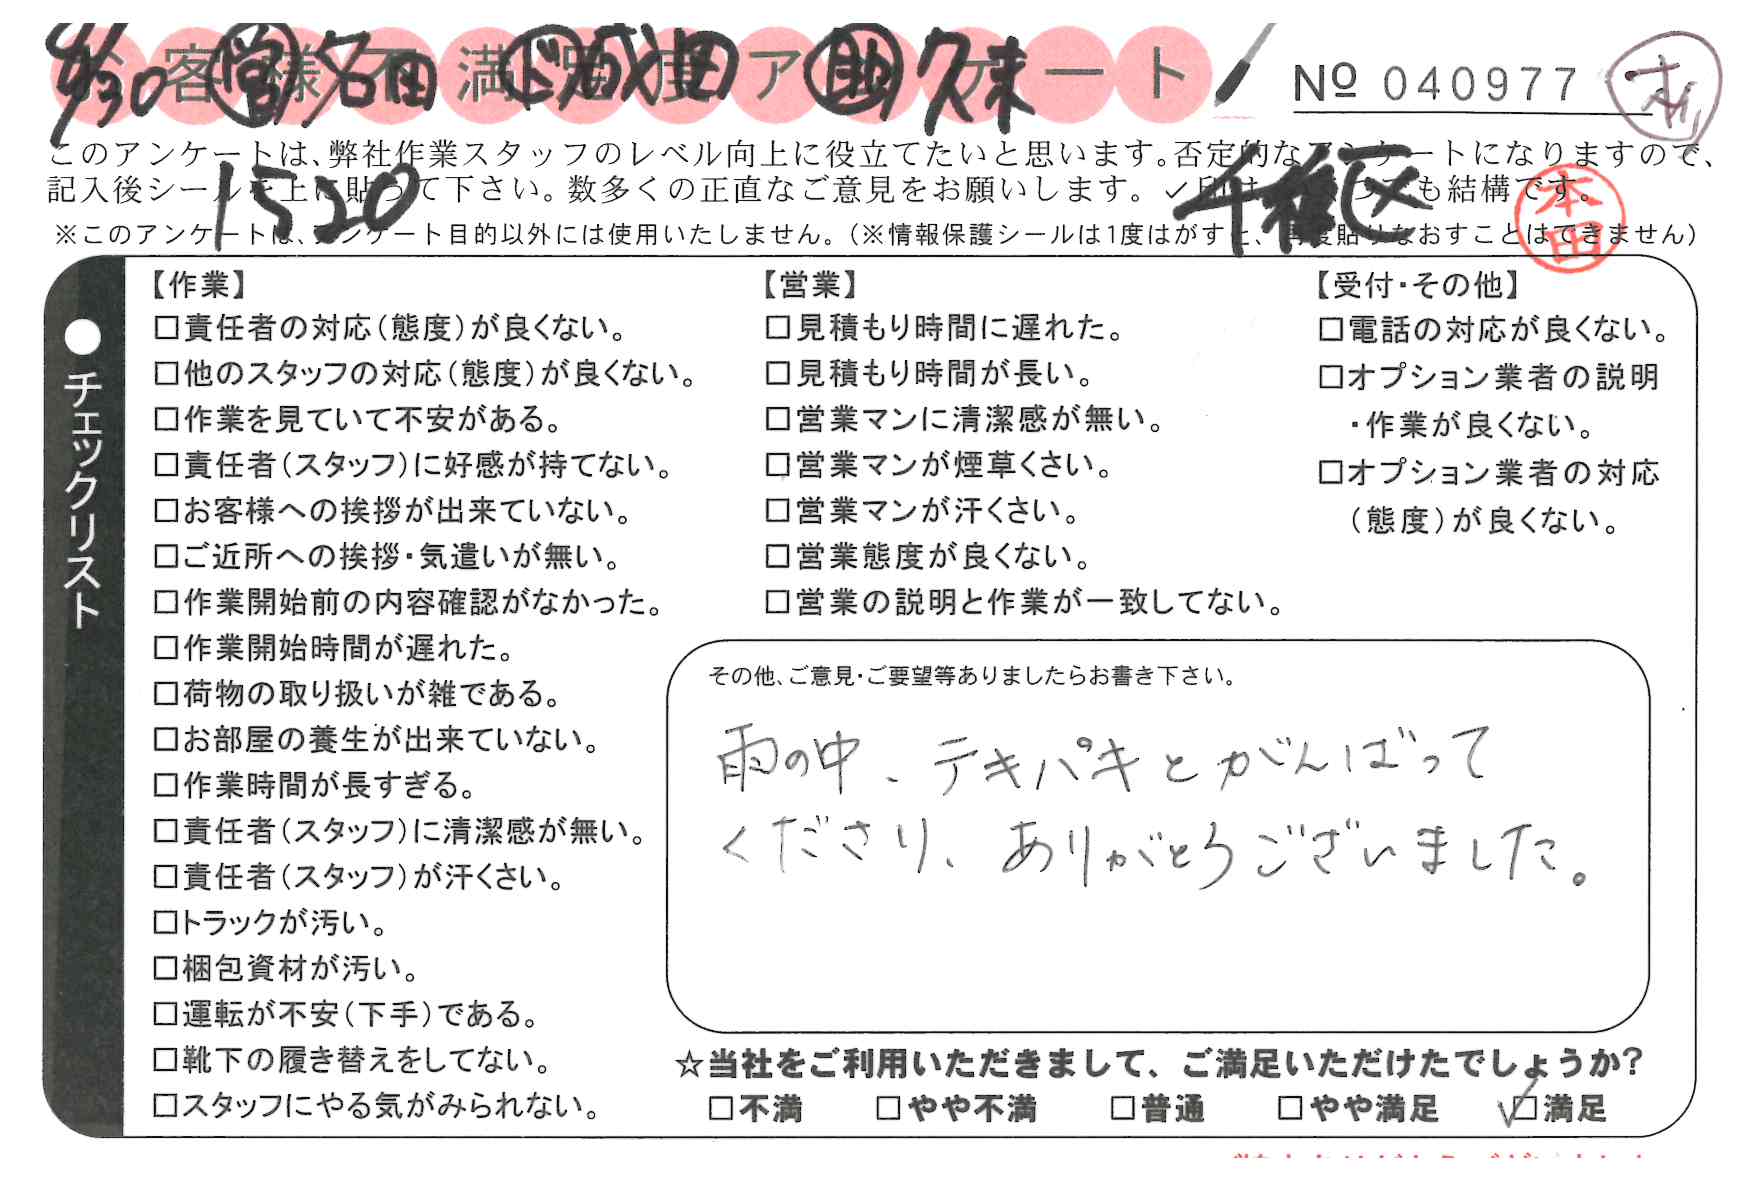 お客様不満足度アンケート
4/30 営 名田 ド 成田 助 久末
№ 040977
このアンケートは、弊社作業スタッフのレベル向上に役立てたいと思います。否定的なアンケートになりますので、
記入後シールを上に貼って下さい。数多くの正直なご意見をお願いします。✓印はいくつでも結構です。
1520
千種区
本田
※このアンケートは、アンケート目的以外には使用いたしません。(※情報保護シールは1度はがすと、再度貼りなおすことはできません)
●チェックリスト
【作業】
□責任者の対応(態度)が良くない。
□他のスタッフの対応(態度)が良くない。
□作業を見ていて不安がある。
□責任者(スタッフ)に好感が持てない。
□お客様への挨拶が出来ていない。
□ご近所への挨拶・気遣いが無い。
□作業開始前の内容確認がなかった。
□作業開始時間が遅れた。
□荷物の取り扱いが雑である。
□お部屋の養生が出来ていない。
□作業時間が長すぎる。
□責任者(スタッフ)に清潔感が無い。
□責任者(スタッフ)が汗くさい。
□トラックが汚い。
□梱包資材が汚い。
□運転が不安(下手)である。
□靴下の履き替えをしてない。
□スタッフにやる気がみられない。
【営業】
□見積もり時間に遅れた。
□見積もり時間が長い。
□営業マンに清潔感が無い。
□営業マンが煙草くさい。
□営業マンが汗くさい。
□営業態度が良くない。
□営業の説明と作業が一致してない。
【受付・その他】
□電話の対応が良くない。
□オプション業者の説明
・作業が良くない。
□オプション業者の対応
(態度)が良くない。
その他、ご意見・ご要望等ありましたらお書き下さい。
雨の中、テキパキとがんばって
くださり、ありがとうございました。
☆当社をご利用いただきまして、ご満足いただけたでしょうか?
□不満 □やや不満 □普通 □やや満足 ✓□満足